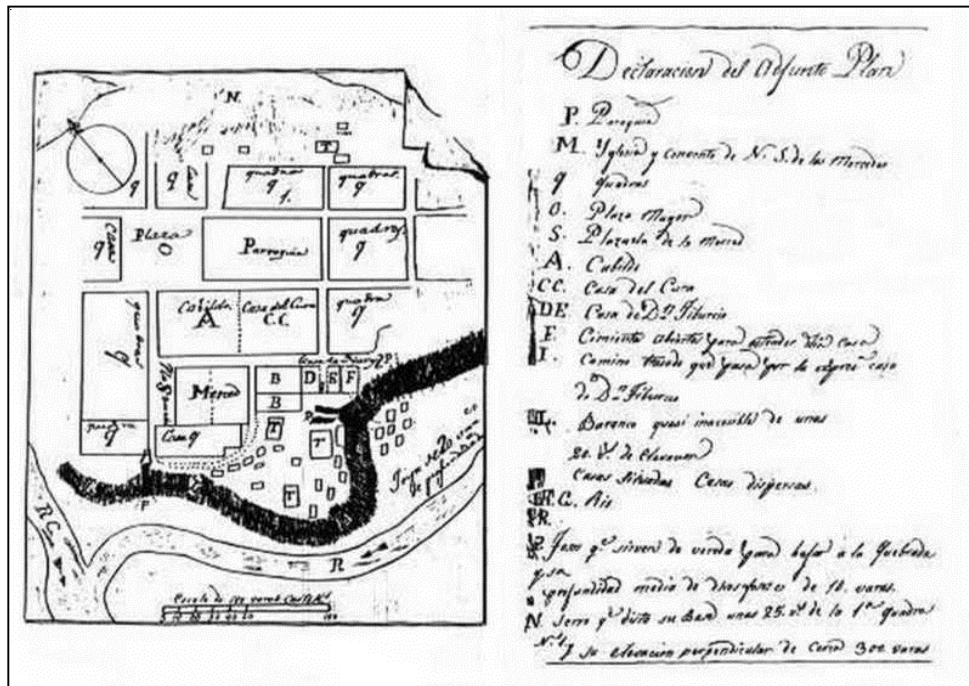 N.
T
q
q
Casa
quadras
q
1.
quadras
q
Casa
q
Plaza
O
Parroquia
quadras
q
quadras
q
Cabildo
A
Casa del Cura
CC.
quadra
q
Merced
B
B
D
E
F
T
T
T
Casa q
q
R
R
Escala de 100 varas Castells

Declaracion del Adjunto Plan
P. Parroquia
M. Yglesia y Convento de N. S. de las Mercedes
q quadras
O. Plaza Mayor
S. Plazuela de la Merced
A. Cabildo
CC. Casa del Cura
DE Casa de Dn. Tiburcio
F. Cimiento abierto para estender dha casa
I. Camino que pasa por la casa
de Dn. Tiburcio
Baranco quasi inacesible de unas
20. vs. de elevacion
Casas situadas Casas dispersas.
R. Rio
que sirven de vereda para bajar a la Quebrada
profundidad media de de 10. varas.
N. Serro qe. dista su Base unas 25. vs. de la 1a. quadra
No. 1 y su elevacion perpendicular de cerca 300 varas